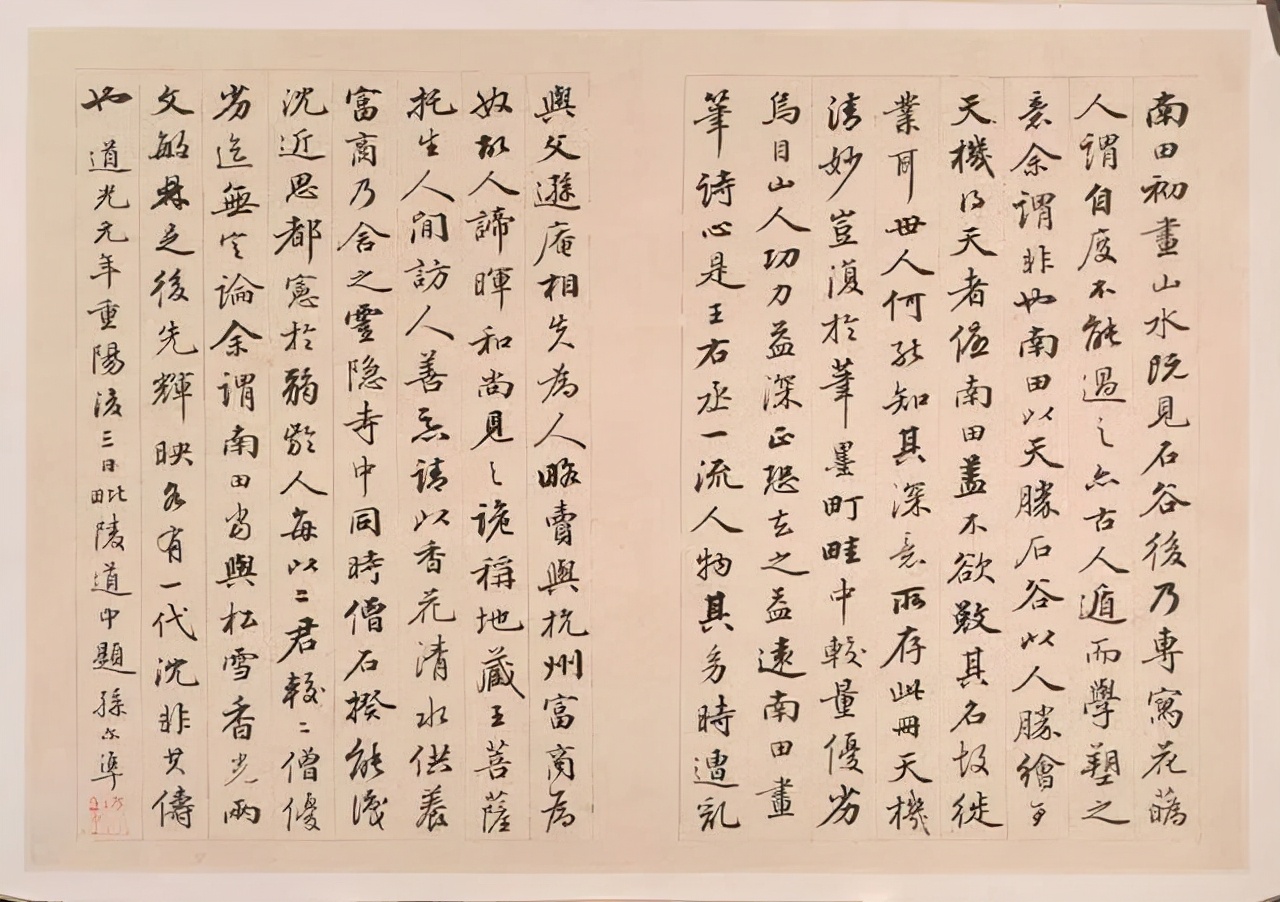 南田初畫山水既見石谷後乃專寫花蘤
人謂自度不能過之亦古人遁而學塑之
意余謂非也南田以天勝石谷以人勝繪事
天機得天者優南田蓋不欲斁其名故徙
業耳世人何能知其深意所存此冊天機
清妙豈復於筆墨町畦中較量優劣
烏目山人功力益深正恐去之益遠南田畫
筆詩心是王右丞一流人物其多時遭乱
與父遜庵相失為人略賣與杭州富商為
奴故人諦暉和尚見之詭稱地藏王菩薩
托生人間訪人善惡請以香花清水供養
富商乃舍之靈隱寺中同時僧石揆能識
沈近思都憲於弱齡人每以二君較二僧優
劣迄無定論余謂南田當與松雪香光兩
文敏鼎足後先輝映各有一代沈非其儔
也 道光元年重陽後三日毗陵道中題孫尔準